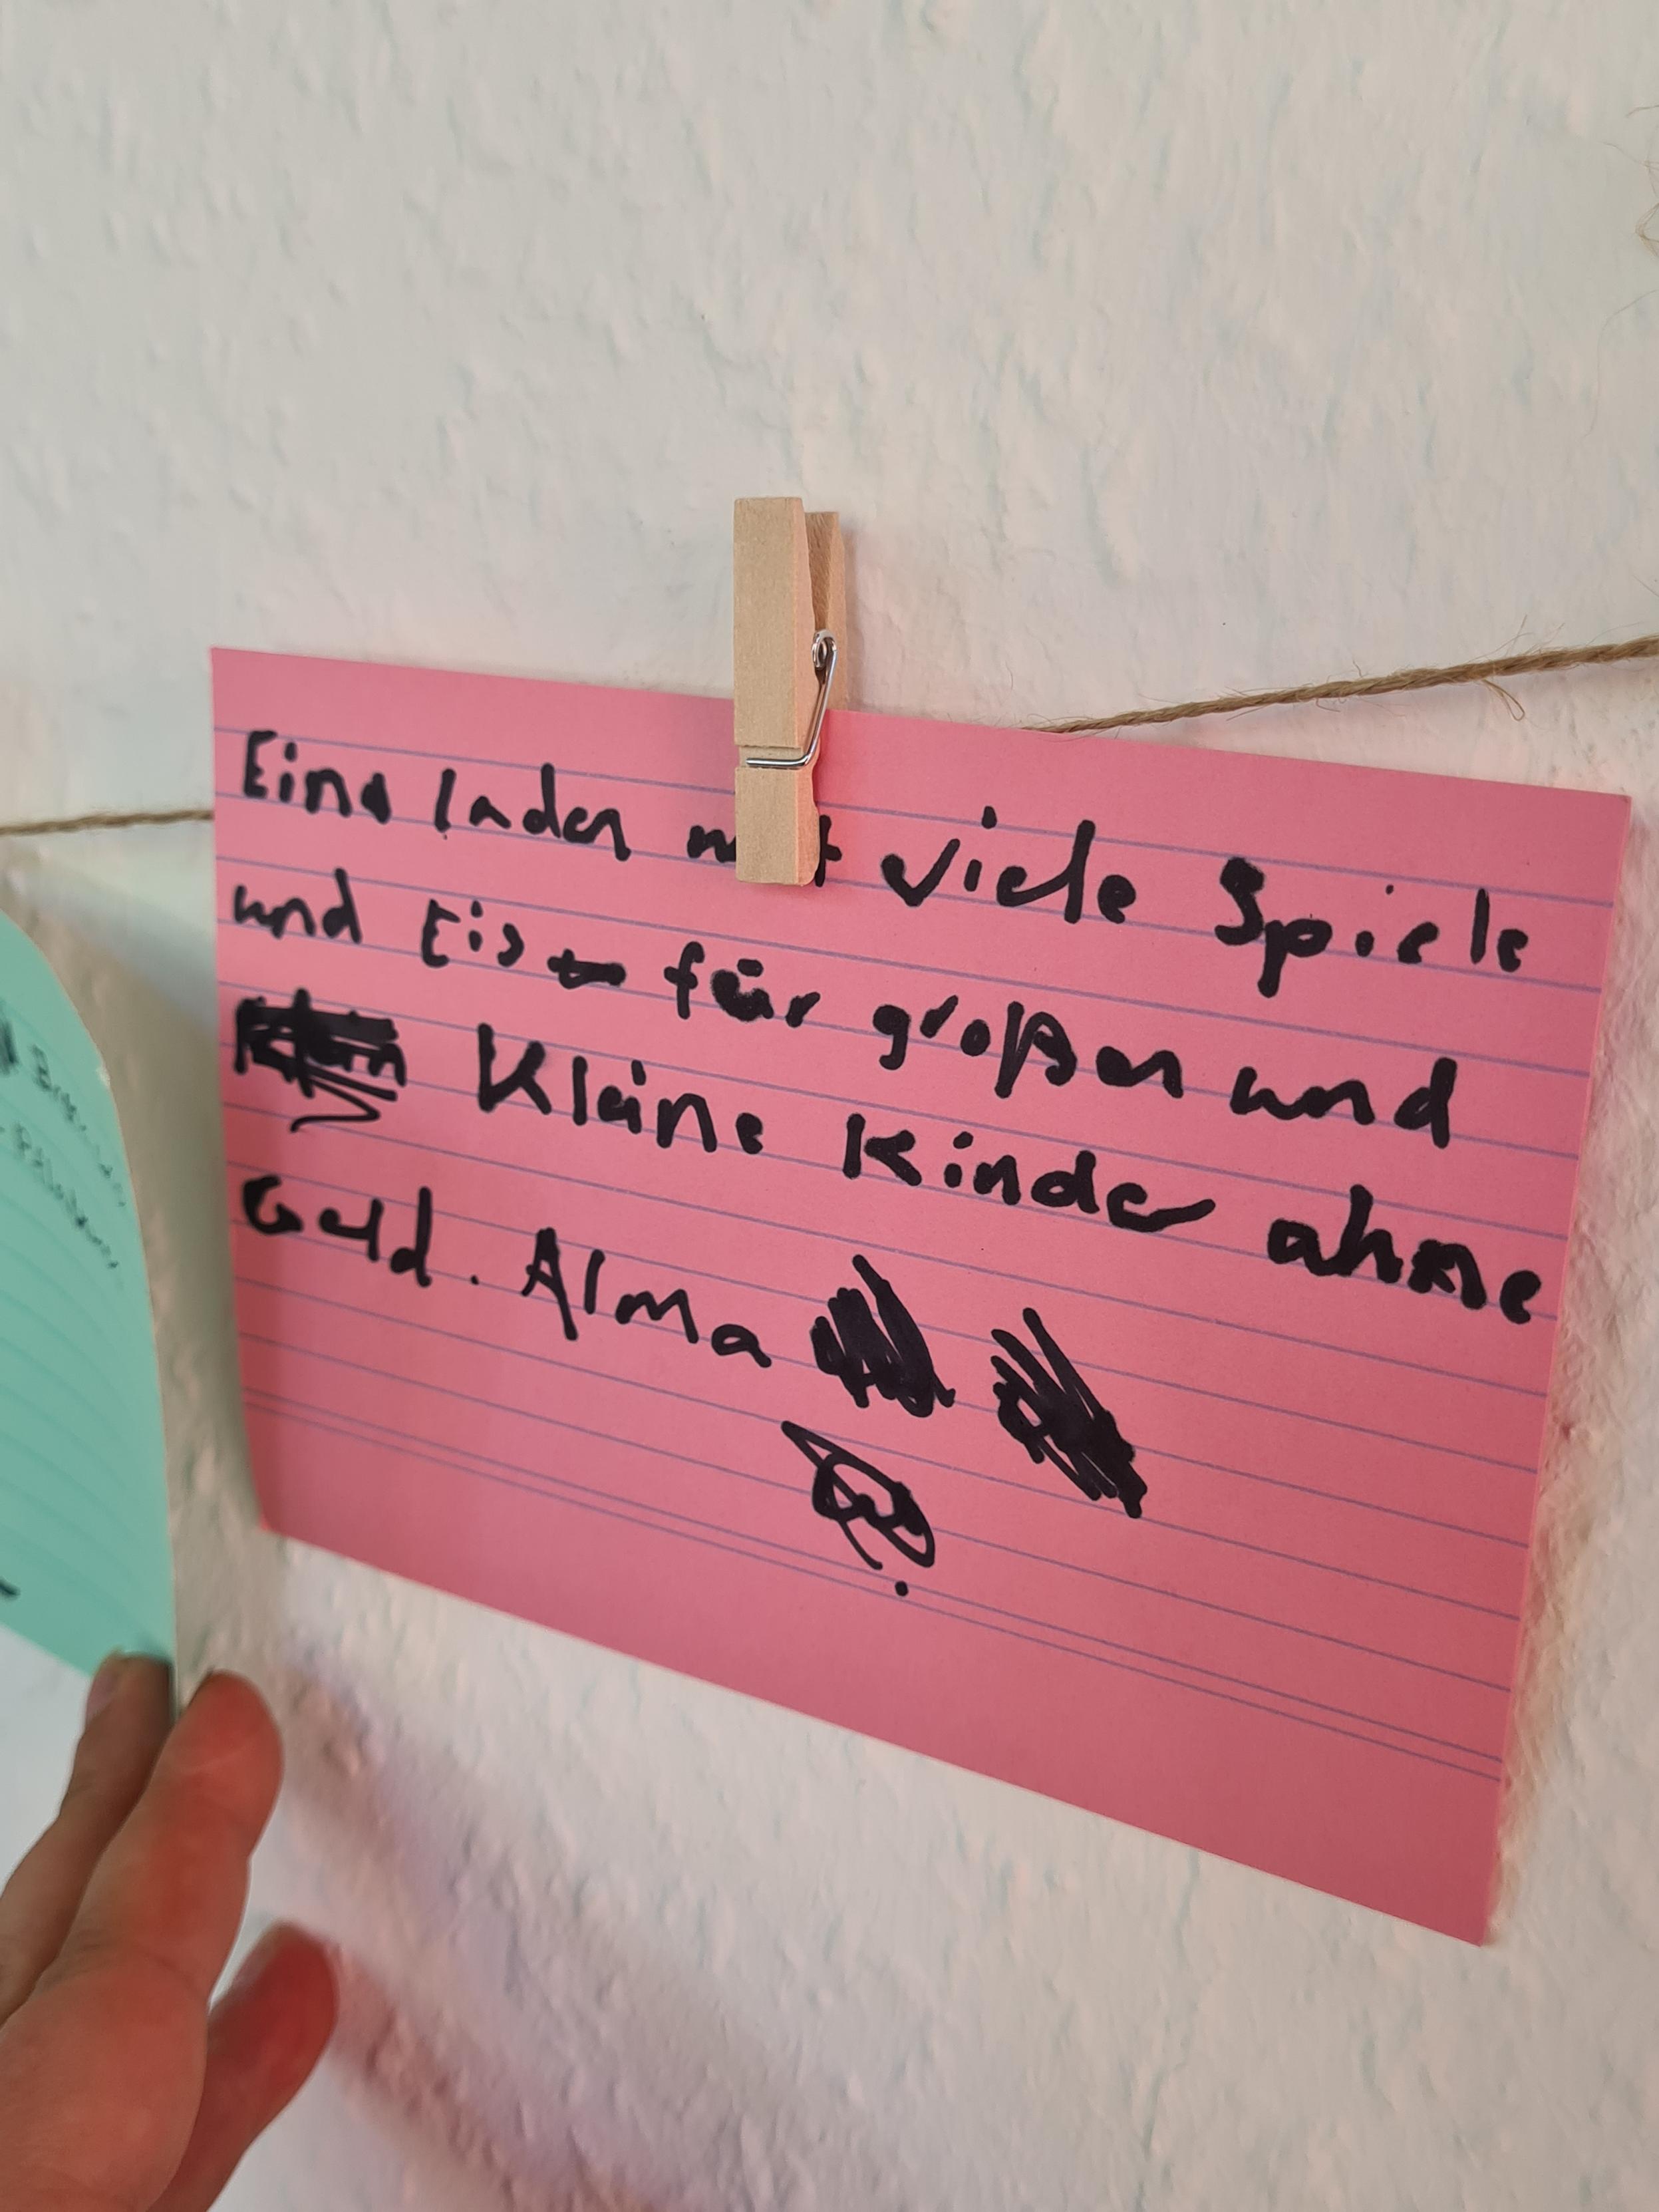 Eine laden mit viele Spiele
und Eis für großen und
Kleine Kinder ahne
Geld. Alma